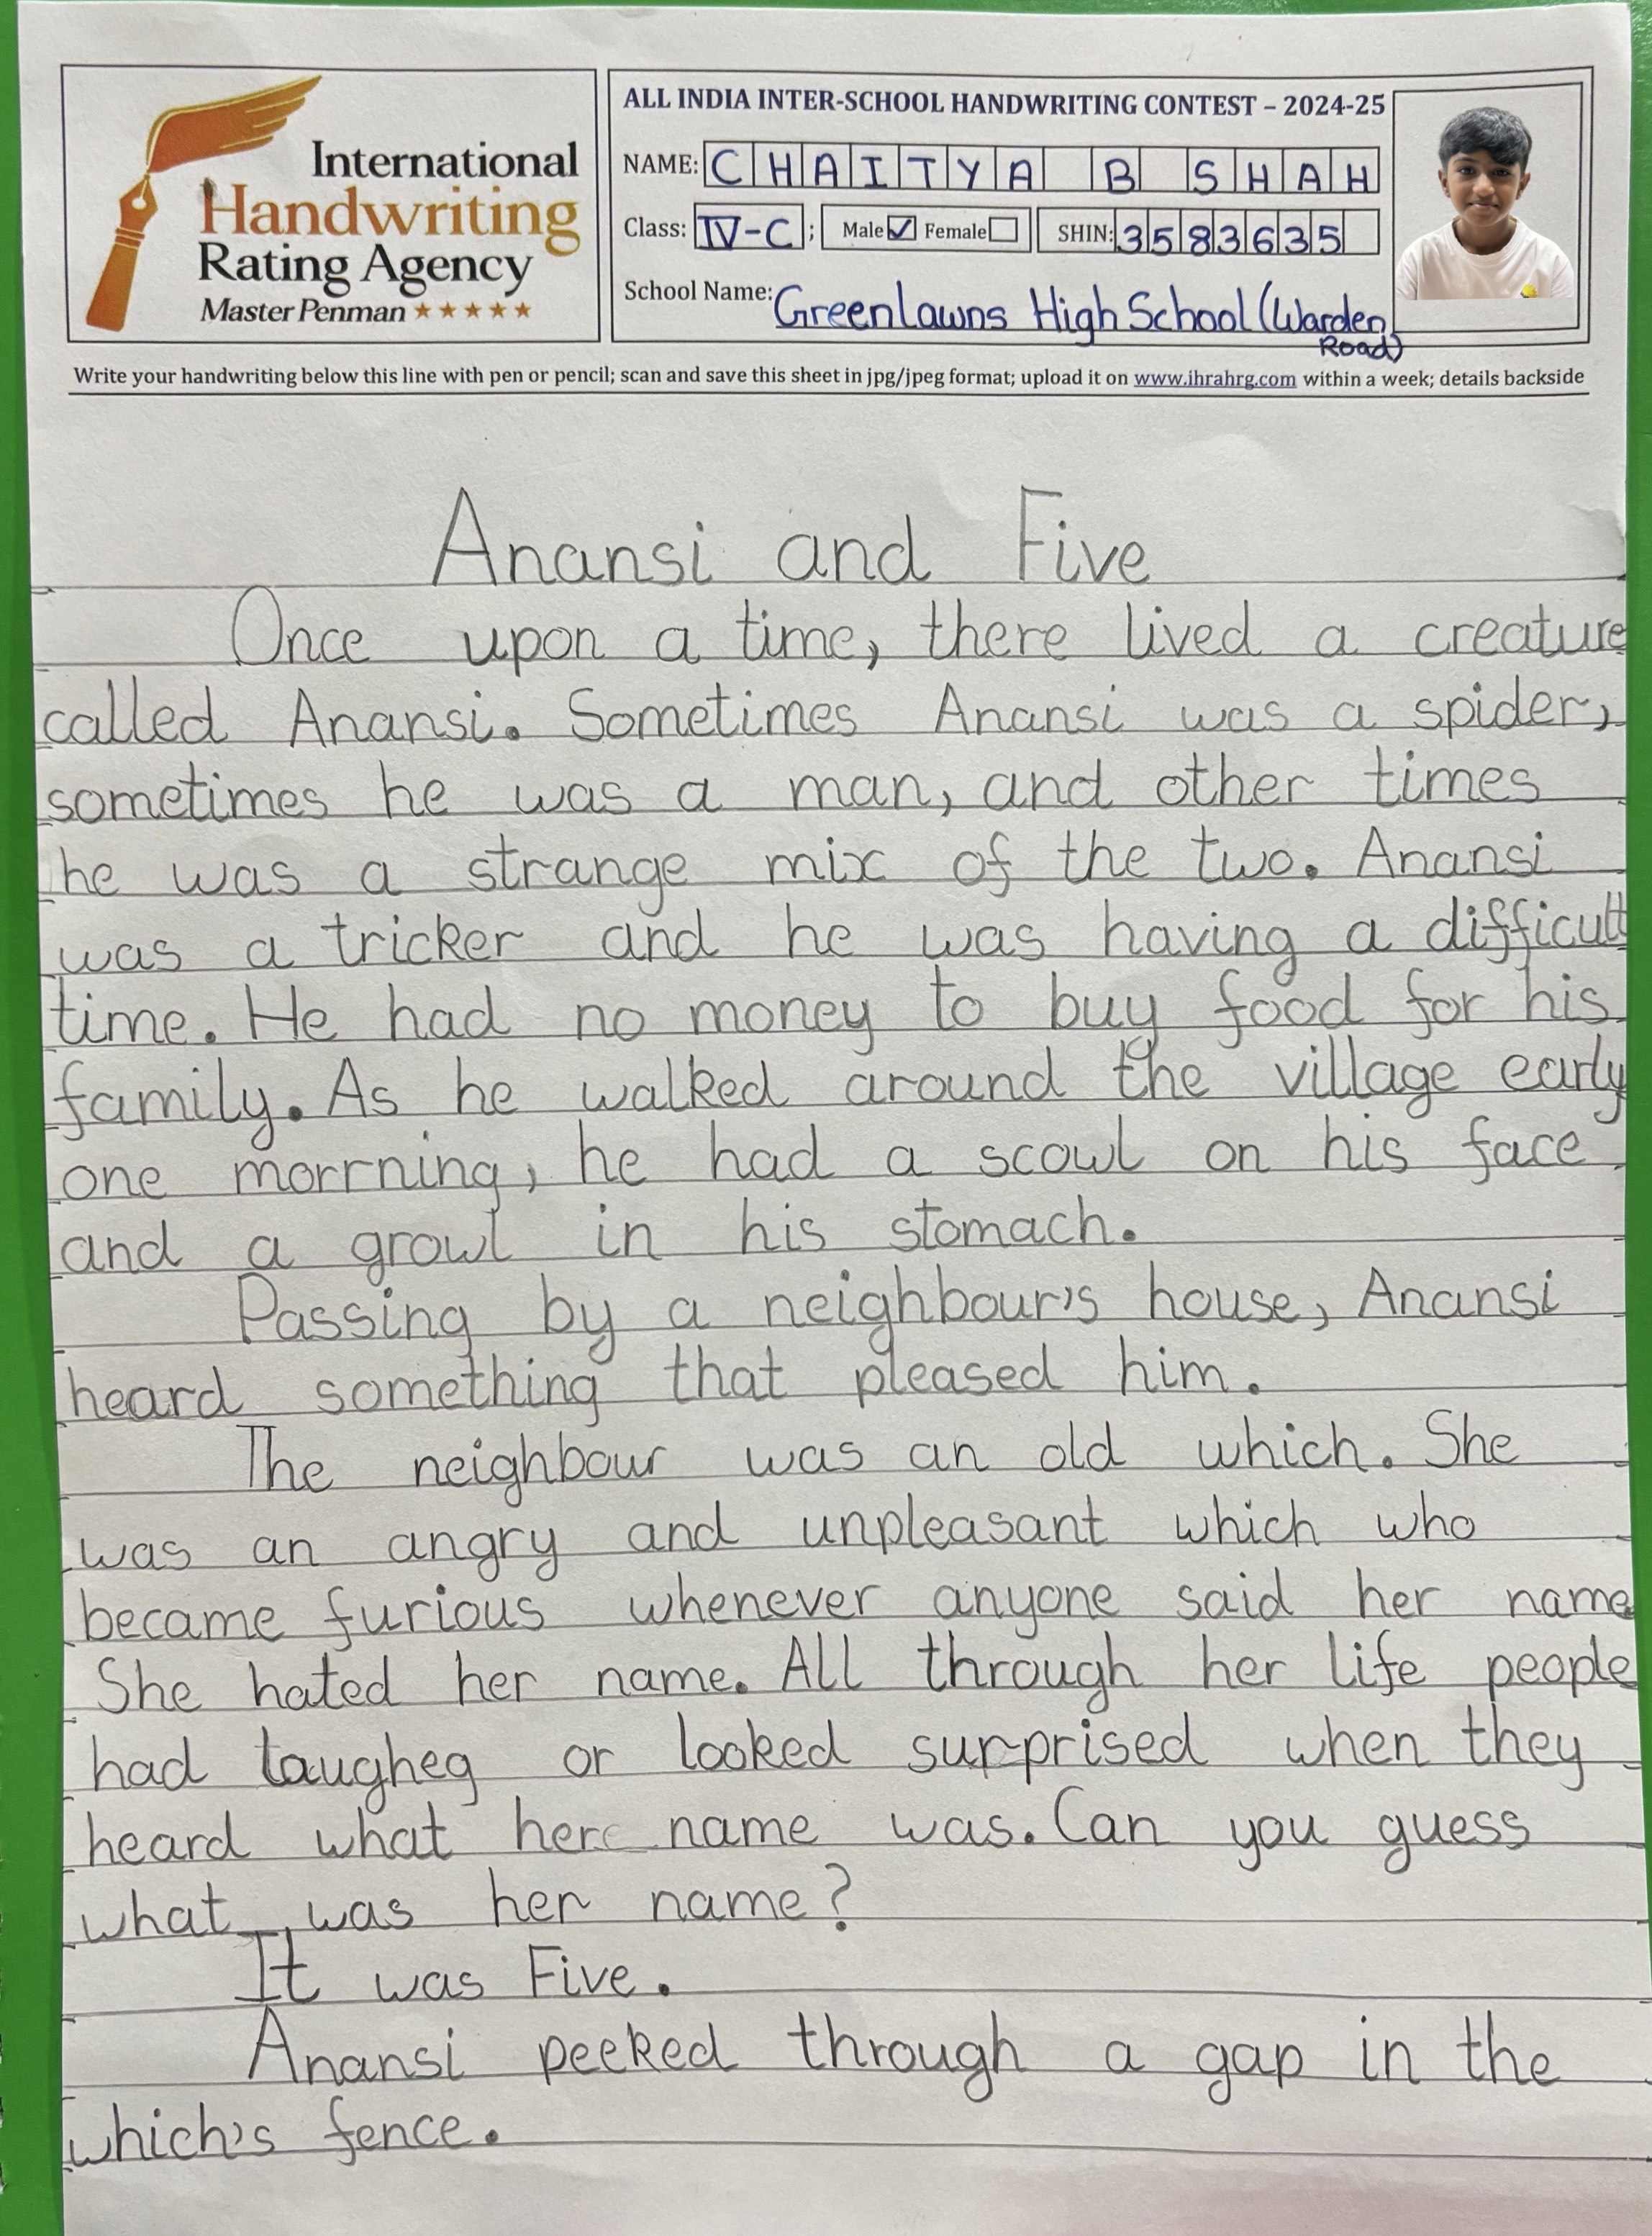 International
Handwriting
Rating Agency
Master Penman ★★★★★
ALL INDIA INTER-SCHOOL HANDWRITING CONTEST – 2024-25
NAME: CHAITYA B SHAH
Class: IV-C ; Male ✓ Female SHIN: 3583635
School Name: Greenlawns High School (Warden
Road)
Write your handwriting below this line with pen or pencil; scan and save this sheet in jpg/jpeg format; upload it on www.ihrahrg.com within a week; details backside
Anansi and Five
Once upon a time, there lived a creature
called Anansi. Sometimes Anansi was a spider,
sometimes he was a man, and other times
he was a strange mix of the two. Anansi
was a tricker and he was having a difficult
time. He had no money to buy food for his
family. As he walked around the village early
one morrning, he had a scowl on his face
and a growl in his stomach.
Passing by a neighbour's house, Anansi
heard something that pleased him.
The neighbour was an old which. She
was an angry and unpleasant which who
became furious whenever anyone said her name
She hated her name. All through her life people
had laugheg or looked surprised when they
heard what here name was. Can you guess
what was her name?
It was Five.
Anansi peeked through a gap in the
which's fence.